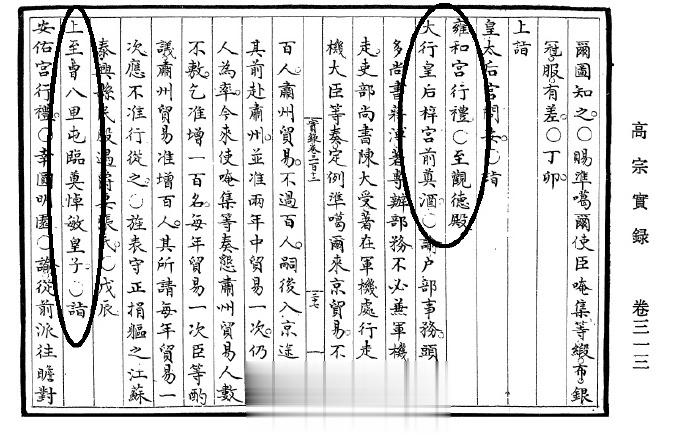 高宗實録 卷三一三
爾圖知之○賜準噶爾使臣唵集等緞布銀
冠服有差○丁卯
上詣
皇太后宮問安○詣
雍和宮行禮○至觀德殿
大行皇后梓宮前奠酒○諭户部事務頭
多尚書蔣溥著專辦部務不必兼軍機
走吏部尚書陳大受著在軍機處行走
機大臣等奏定例準噶爾來京貿易不
百人肅州貿易不過百人嗣後入京途
其前赴肅州並准兩年中貿易一次仍
人為率今來使唵集等奏懇肅州貿易人數
不敷乞准增一百名每年貿易一次臣等酌
議肅州貿易准增百人其所請每年貿易一
次應不准行從之○旌表守正捐軀之江蘇
泰興縣民殷遇爵妻張氏○戊辰
上至曹八里屯臨奠悼敏皇子○詣
安佑宮行禮○幸圓明園○諭從前派往瞻對